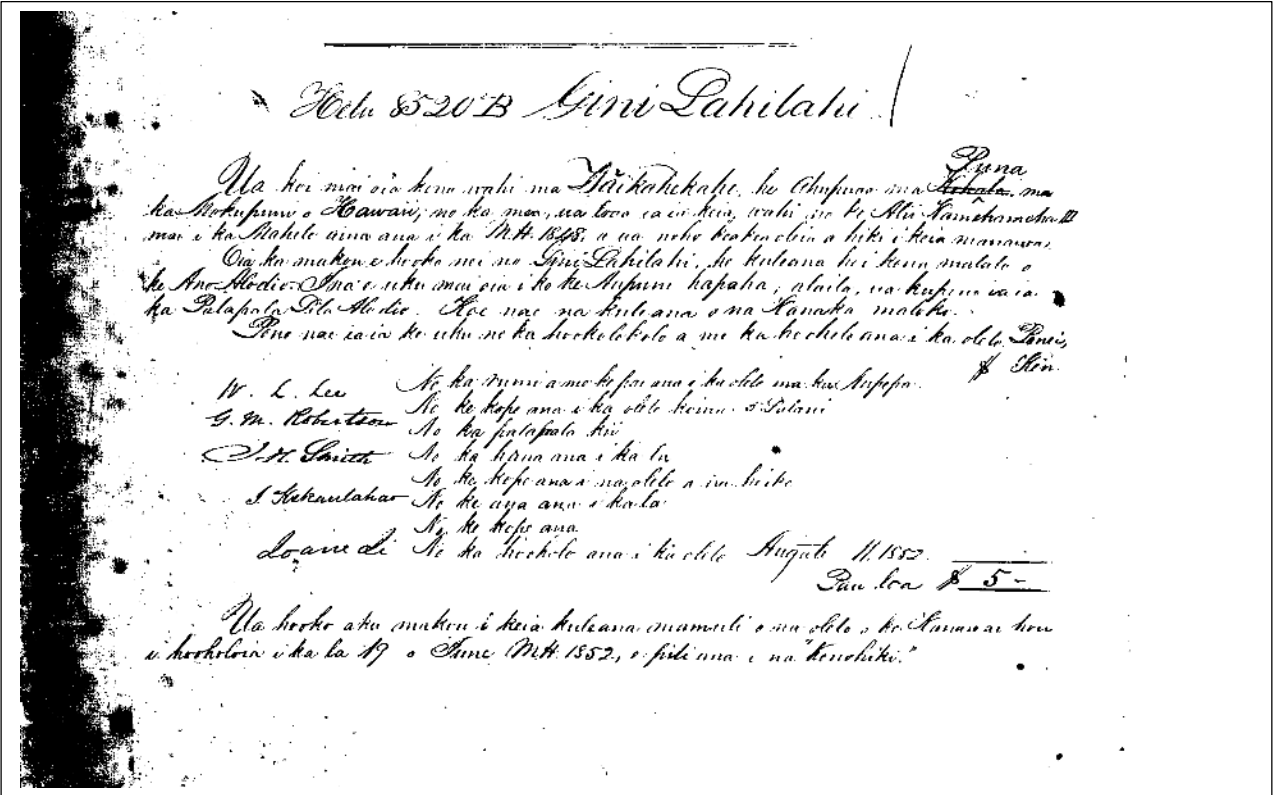 Helu 8520 B Gini Lahilahi
Puna
Ua koi mai oia kona wahi ma Waikahekahe, he Ahupuaa ma Kohala, ma
ka Mokupuni o Hawaii; no ka mea, ua loaa ia ia keia wahi no ke Alii Kamehameha III
mai i ka Mahele aina ana i ka M.H. 1848, a ua noho keakea oleia a hiki i keia manawa.
Oia ka makou e hooko nei no Gini Lahilahi, he kuleana hei kona malalo o
ke Ano Alodio. Ina e uku mai oia i ko ke Aupuni hapaha, alaila, ua kupono ia ia
ka Palapala Sila Alodio. Koe nae na kuleana o na Kanaka maloko.
Pono nae ia ia ke uku no ka hookolokolo a me ka hoohola ana i ka olelo. Penei,
$ Ken.
W. L. Lee No ka rumi a me ke pai ana i ka olelo ma ka Nupepa.
No ke kope ana i ka olelo kinu o Pulani
G. M. Robertson No ka palapala kii
J. H. Smith No ka hana ana i ka la
No ke kope ana i na olelo a ua hoike
J. Kekaulahao No ke ana ana i ka la
No ke kope ana
Ioane Ii No ka hooholo ana i ka olelo Augate 11. 1852.
Pau loa $ 5 -
Ua hooko aku makou i keia kuleana mamuli o na olelo o ke Kanawai hou
i hooholoia i ka la 19 o June M.H. 1852, e pili ana i na "Konohiki."